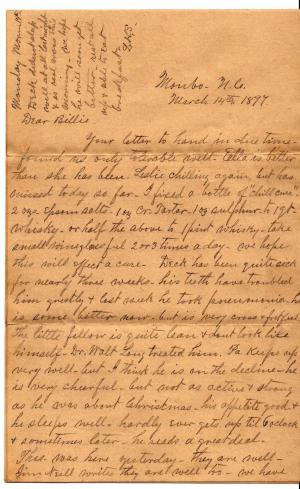 Monday Morn
Deck did not sleep
well at all last night
& is real cross this
morning - we hope
he will soon get
better rest all
up & able to eat
breakfast
Monbo - N.C.
March 14th 1897
Dear Billie
Your letter to hand in due time -
found us only tolerable well - Cella is better
than she has been Leslie chilling again but has
missed today so far - I fixed a bottle of chill cure -
2 ozs Epsom salts - 1 oz Cr. Tartar - 1 oz sulphur to 1 qt
Whiskey - or half the above to 1 pint whiskey - take
small wine glass ful 2 or 3 times a day - we hope
this will effect a cure - Deck has been quite sick
for nearly three weeks - his teeth have troubled
him greatly & last week he took pneumonia - he
is some better now - but is very cross & fretful
The little fellow is quite lean & dont look like
himself - Dr. Walt Long treated him. Pa keeps up
very well - but I think he is on the decline - he
is very cheerful - but not as active & strong
as he was about Christmas - his appetite good &
he sleeps well - hardly ever gets up til 6 oclock
& sometimes later - he reads a great deal.
Theo. was here yesterday - they are well -
Jim Neill writes they are well too - we have